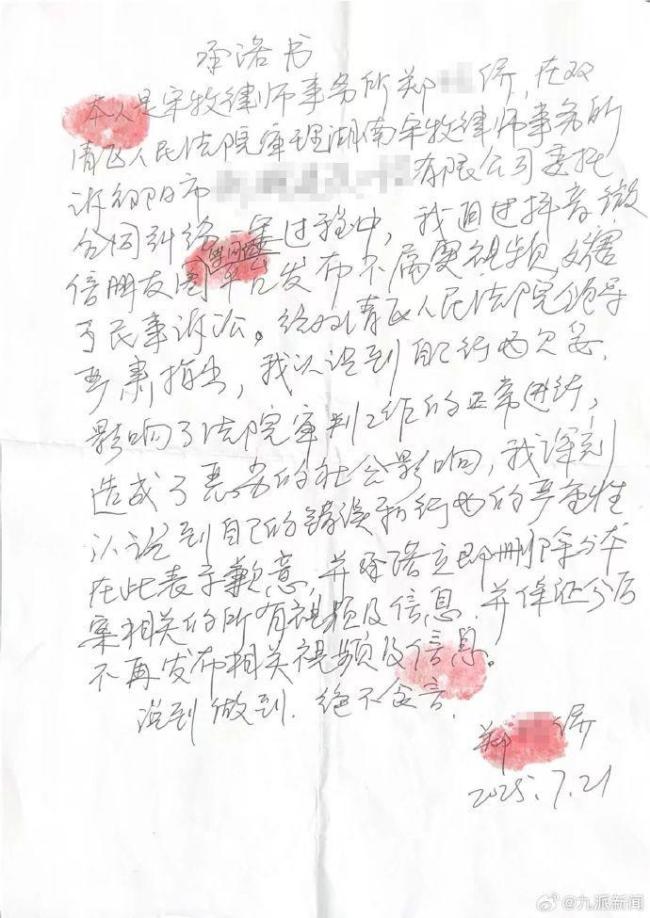 承诺书
本人是宋牧律师事务所郑 侨,在双
清区人民法院审理湖南宋牧律师事务所
诉邵阳市 有限公司委托
合同纠纷一案过程中,我通过抖音、微
信朋友圈 平台发布不属实视频,妨害
了民事诉讼。经双清区人民法院领导
严肃指出,我认识到自己行为欠妥,
影响了法院审判工作的正常进行,
造成了恶劣的社会影响,我深刻
认识到自己的错误和行为的严重性
在此表示歉意,并承诺立即删除与本
案相关的所有视频及信息,并保证今后
不再发布相关视频及信息。
说到做到.绝不食言.
郑 侨
2025.7.21
@九派新闻